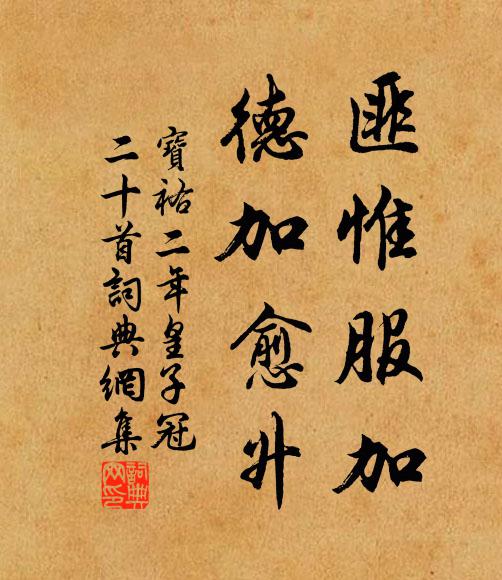 匪惟服加
德加愈升
寶祐二年皇子冠
二十首詞典網集
詞典网印